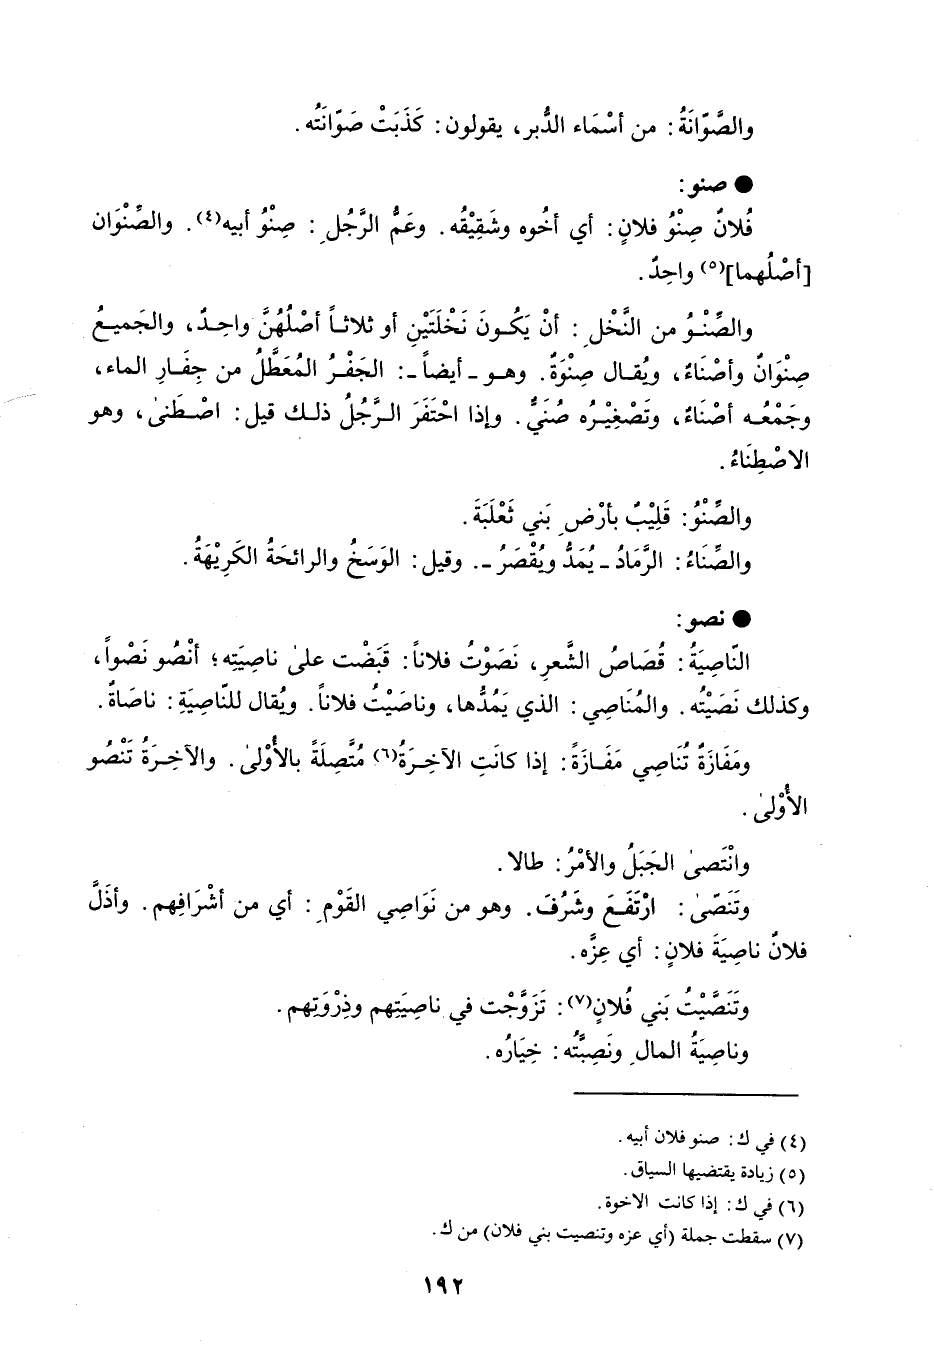 والصَّوّانَةُ: من أسْمَاء الدُّبر، يقولون: كَذَبَتْ صَوّانَتُه.
● صنو:
فُلانٌ صِنْوُ فلانٍ: أي أخُوه وشَقِيْقُه. وعَمُّ الرَّجُلِ: صِنْوُ أبيه(٤). والصِّنْوَان
[أصْلُهما](٥) واحِدٌ.
والصِّنْوُ من النَّخْلِ: أنْ يَكُونَ نَخْلَتَيْنِ أو ثلاثاً أصْلُهُنَّ واحِدٌ، والجَميعُ
صِنْوَانٌ وأصْنَاءٌ، ويُقال صِنْوَةٌ. وهو ـ أيضاً ـ: الجَفْرُ المُعَطَّلُ من جِفَارِ الماء،
وجَمْعُه أصْنَاءٌ، وتَصْغِيْرُه صُنَيٌّ. وإذا احْتَفَرَ الرَّجُلُ ذلك قيل: اصْطَنىٰ، وهو
الاصْطِنَاءُ.
والصِّنْوُ: قَلِيْبٌ بأرْضِ بَني ثَعْلَبَةَ.
والصِّنَاءُ: الرَّمَادُ ـ يُمَدُّ ويُقْصَرُ ـ. وقيل: الوَسَخُ والرائحَةُ الكَرِيْهَةُ.
● نصو:
النّاصِيَةُ: قُصَاصُ الشَّعرِ، نَصَوْتُ فلاناً: قَبَضْت علىٰ ناصِيَتِه؛ أنْصُو نَصْواً،
وكذلك نَصَيْتُه. والمُنَاصِي: الذي يَمُدُّها، وناصَيْتُ فلاناً. ويُقال للنّاصِيَةِ: ناصَاةٌ.
ومَفَازَةٌ تُنَاصِي مَفَازَةً: إذا كانَتِ الآخِرَةُ(٦) مُتَّصِلَةً بالأُوْلىٰ. والآخِرَةُ تَنْصُو
الأُوْلىٰ.
وانْتَصىٰ الجَبَلُ والأمْرُ: طالا.
وتَنَصّىٰ: ارْتَفَعَ وشَرُفَ. وهو من نَوَاصِي القَوْمِ: أي من أشْرَافِهم. وأذَلَّ
فلانٌ ناصِيَةَ فلانٍ: أي عِزَّه.
وتَنَصَّيْتُ بَني فُلانٍ(٧): تَزَوَّجْت في ناصِيَتِهم وذِرْوَتِهم.
وناصِيَةُ المالِ ونَصِيَّتُه: خِيَارُه.
(٤) في ك: صنو فلان أبيه.
(٥) زيادة يقتضيها السياق.
(٦) في ك: إذا كانت الاخوة.
(٧) سقطت جملة (أي عزه وتنصيت بني فلان) من ك.
١٩٢